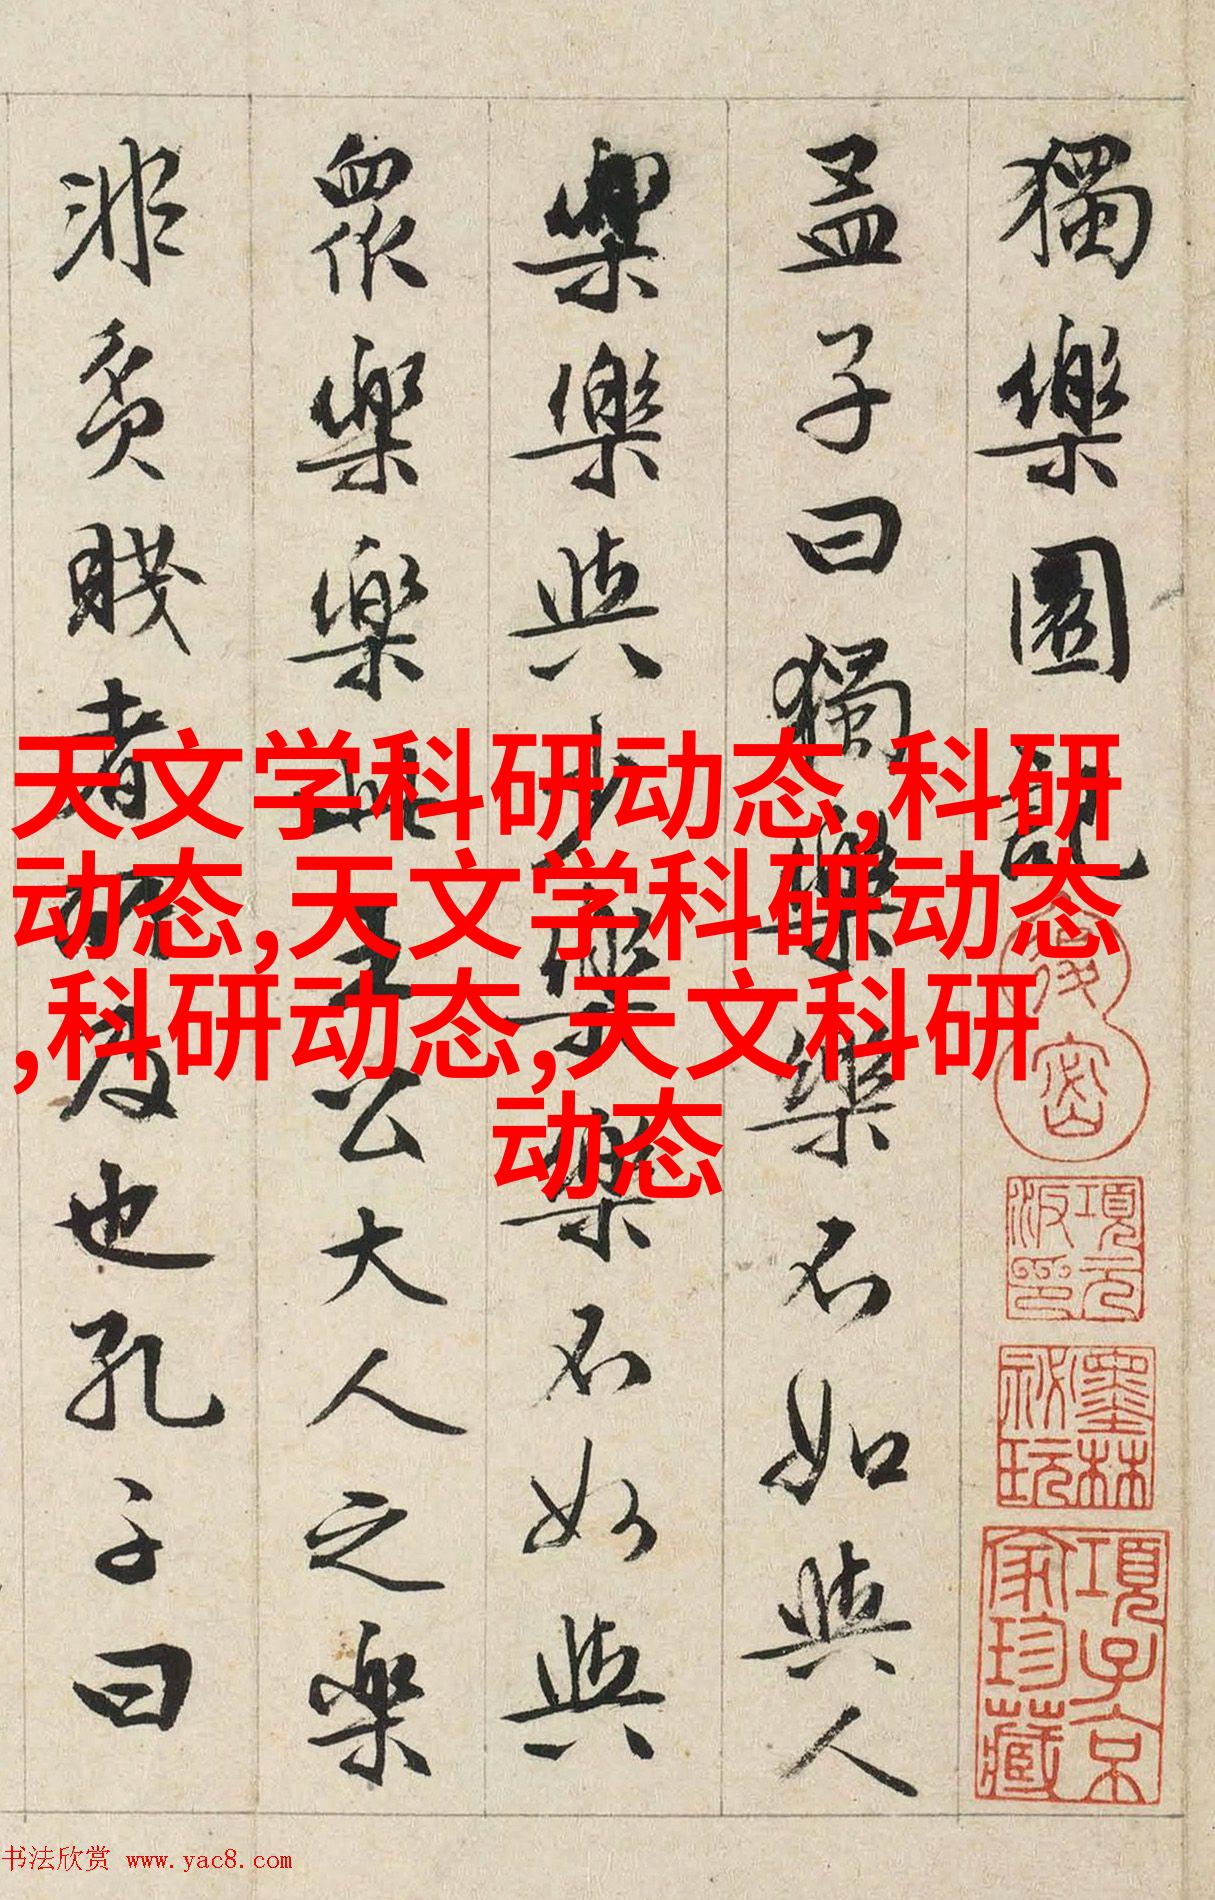 獨樂園記
孟子曰獨樂樂不如與人
樂樂與少樂樂不如與
衆樂樂此王公大人之樂
非貧賤者所及也孔子曰
天文学科研动态,科研
动态,天文学科研动态
,科研动态,天文科研
动态
項元汴印
墨林秘玩
項子京家珍藏
书法欣赏 www.yac8.com